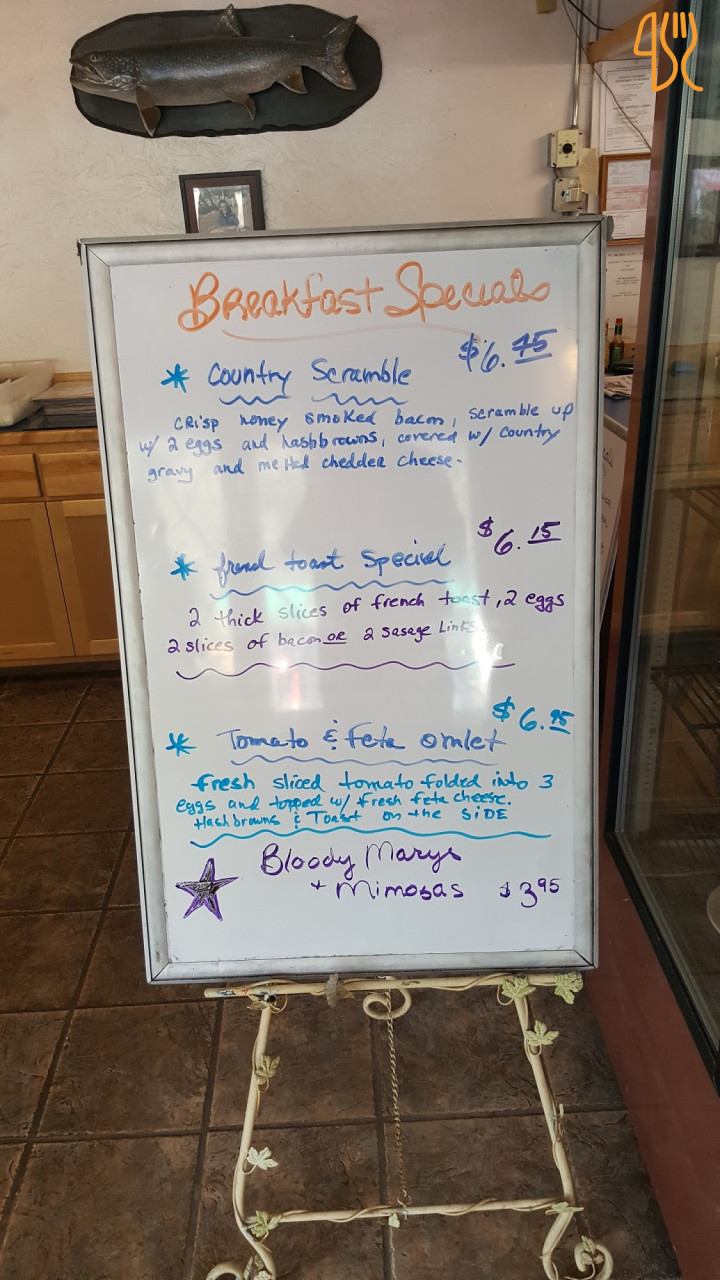 Breakfast Specials
* Country Scramble $6.45
CRisp honey smoked bacon, scramble up
w/ 2 eggs and hashbrowns, covered w/ country
gravy and melted chedder cheese.
* french toast Special $6.15
2 thick slices of french toast, 2 eggs
2 slices of bacon or 2 sasage Links.
* Tomato & Feta omlet $6.95
fresh sliced tomato folded into 3
eggs and topped w/ fresh feta cheese.
Hashbrowns & Toast on the SiDE
Bloody Marys
+ Mimosas $3.95